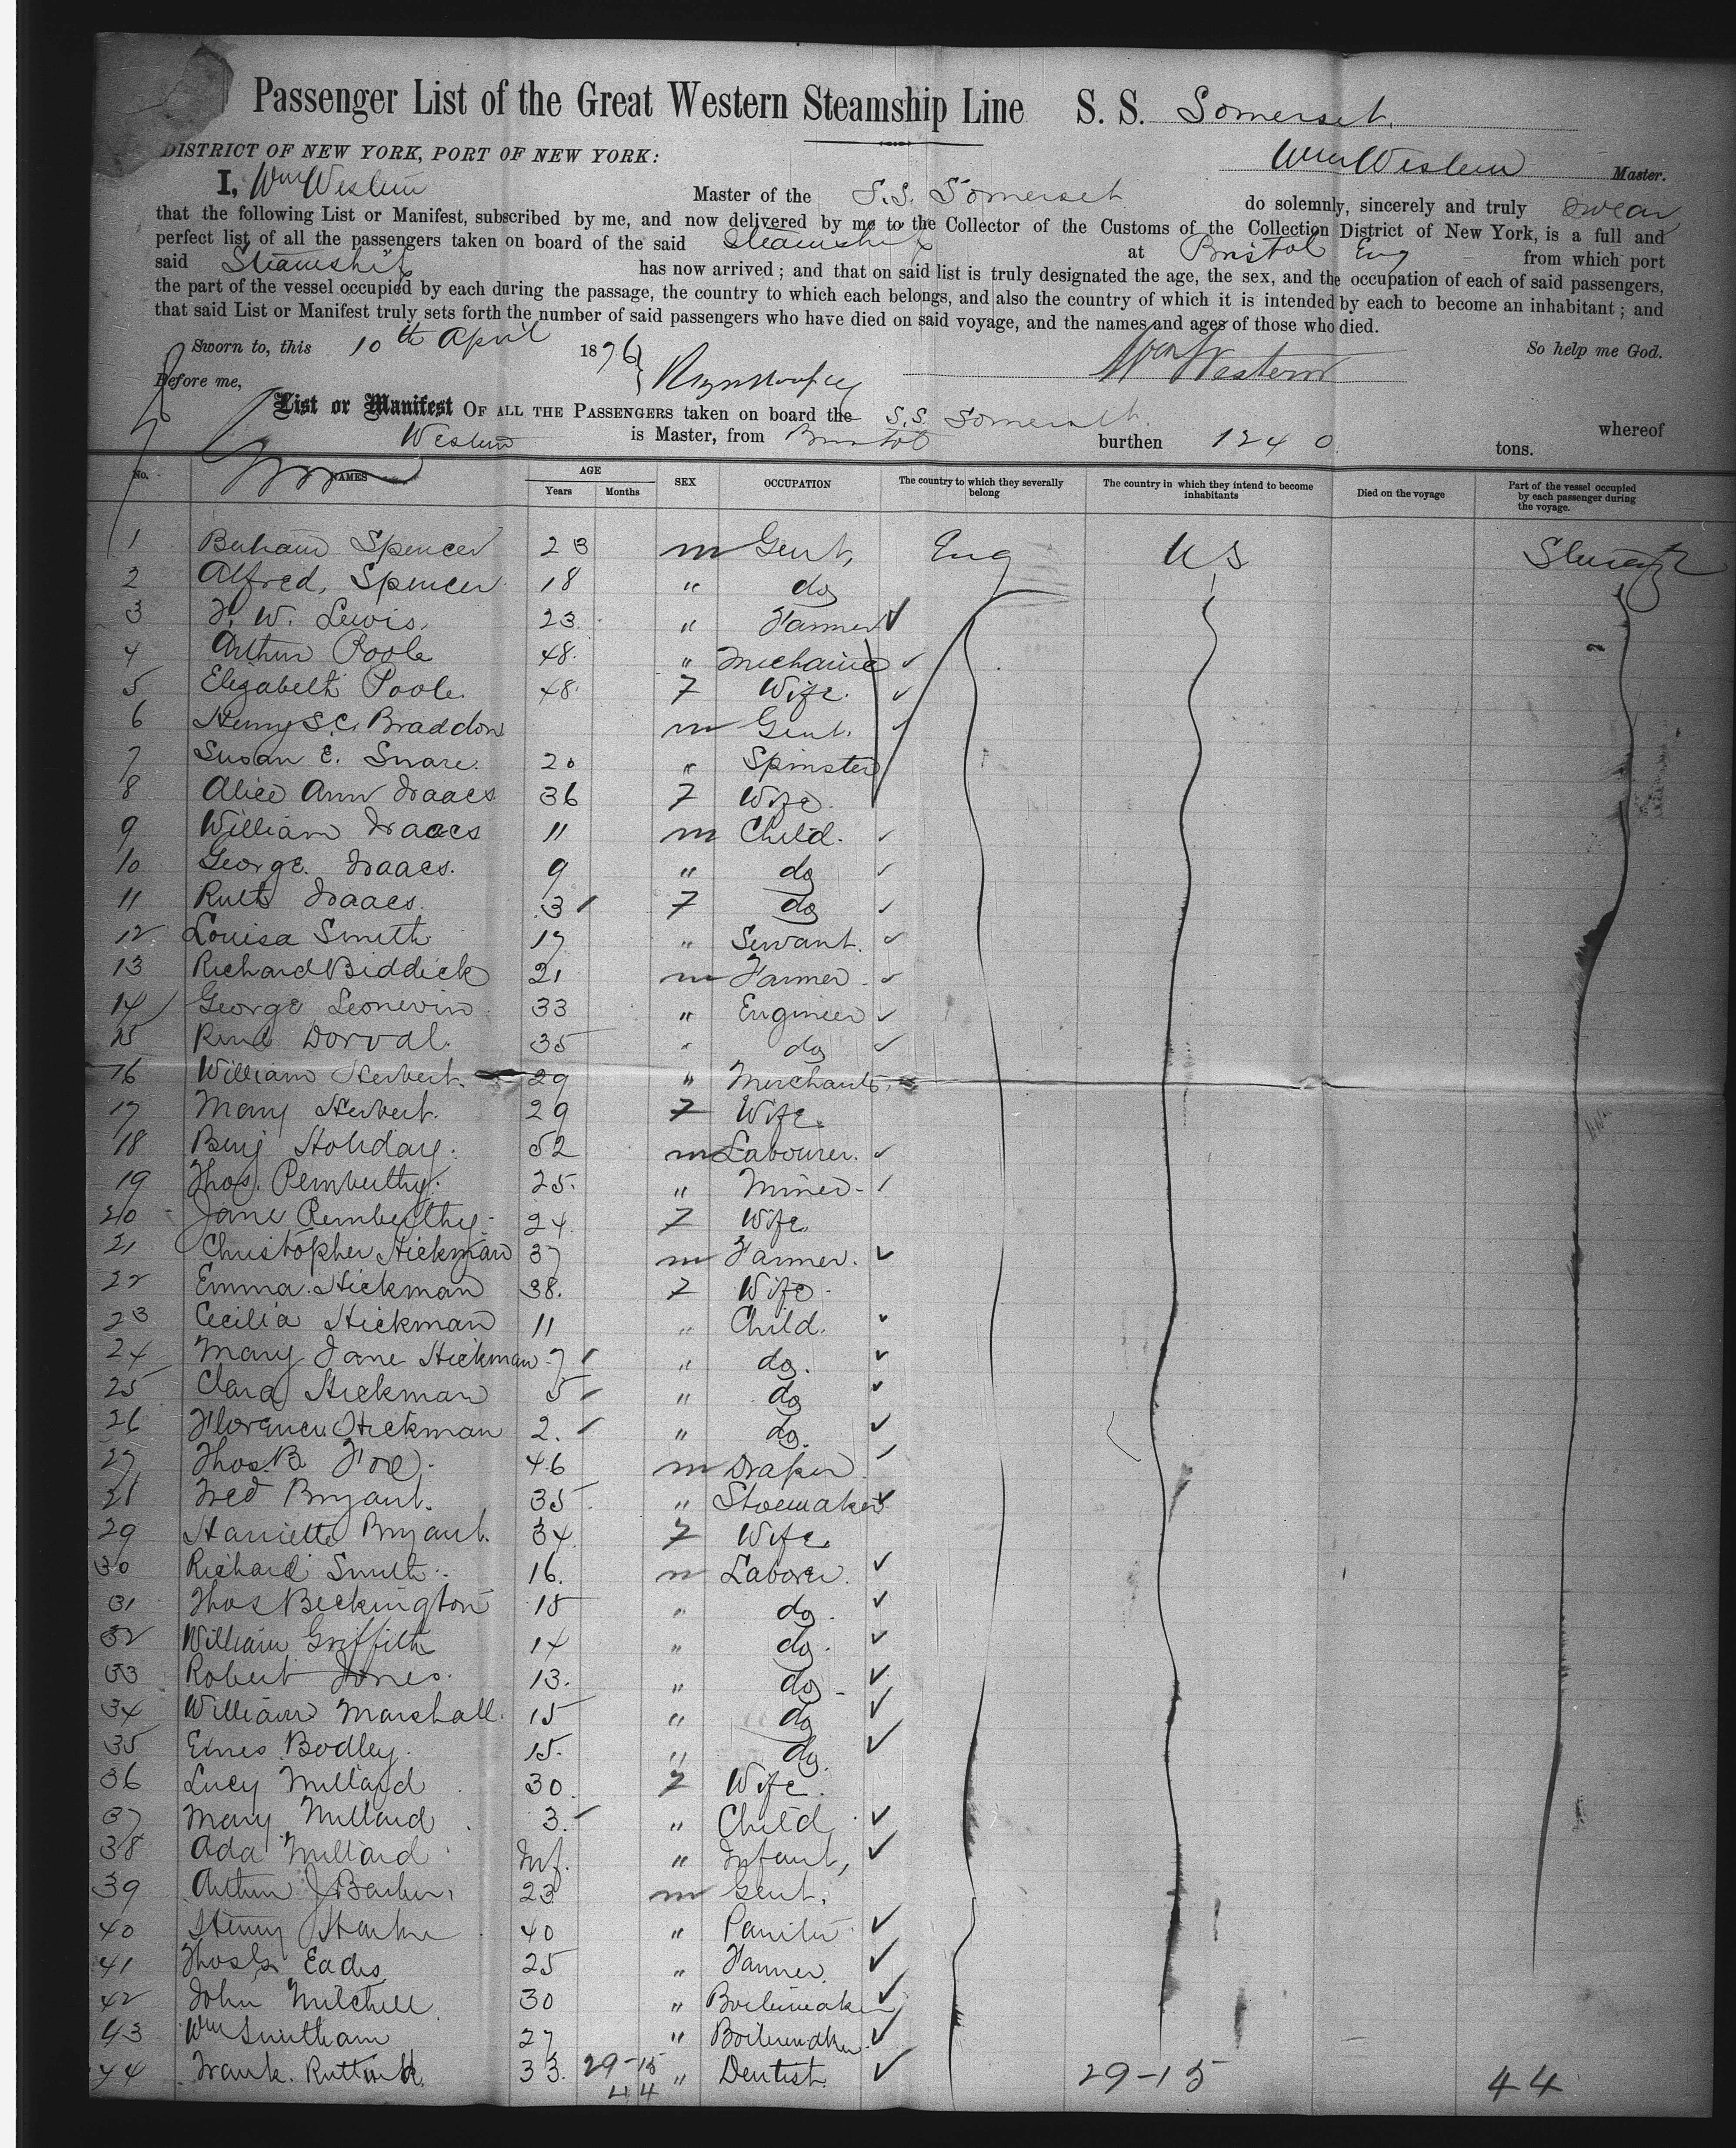 Passenger List of the Great Western Steamship Line S. S. Somerset.
DISTRICT OF NEW YORK, PORT OF NEW YORK:
Wm Western Master.
I, Wm Western Master of the S.S. Somerset do solemnly, sincerely and truly swear
that the following List or Manifest, subscribed by me, and now delivered by me to the Collector of the Customs of the Collection District of New York, is a full and
perfect list of all the passengers taken on board of the said Steamship at Bristol Eng from which port
said Steamship has now arrived; and that on said list is truly designated the age, the sex, and the occupation of each of said passengers,
the part of the vessel occupied by each during the passage, the country to which each belongs, and also the country of which it is intended by each to become an inhabitant; and
that said List or Manifest truly sets forth the number of said passengers who have died on said voyage, and the names and ages of those who died.
Sworn to, this 10th April 1876 So help me God.
Before me, Wm Western
List or Manifest OF ALL THE PASSENGERS taken on board the S.S. Somerset. whereof
Western is Master, from Bristol burthen 1240 tons.
No. NAMES AGE Years Months SEX OCCUPATION The country to which they severally belong The country in which they intend to become inhabitants Died on the voyage Part of the vessel occupied by each passenger during the voyage.
1 Spencer 23 m Gent, Eng U S
2 Alfred, Spencer 18 " do
3 F. W. Lewis, 23 " Farmer
4 Arthur Poole 48 " Mechanic
5 Elizabeth Poole 48 F Wife.
6 Henry S.C. Braddon m Gent.
7 Susan E. Snare. 20 " Spinster
8 Alice Ann Isaacs 36 F Wife.
9 William Isaacs 11 m Child.
10 George. Isaacs. 9 " do
11 Ruth Isaacs. 3 F do
12 Louisa Smith 17 " Servant.
13 Richard Biddick 21 m Farmer
14 George 33 " Engineer
15 Dorval. 35 " do
16 William Herbert. 29 " Merchant
17 Mary Herbert. 29 F Wife.
18 Benj Holiday. 52 m Labourer.
19 Thos. Pemberthy. 25. " Miner
20 Jane Pemberthy 24. F Wife
21 Christopher Hickman 37 m Farmer.
22 Emma. Hickman 38. F Wife
23 Cecilia Hickman 11 " Child.
24 Mary Jane Hickman 7 " do.
25 Clara Hickman 5 " do
26 Florence Hickman 2. " do.
27 Thos. B. 46 m Draper
28 Fred Bryant. 35 " Shoemaker
29 Harriette Bryant. 34. F Wife.
30 Richard Smith 16. m Laborer.
31 Thos Beckington 15 " do.
32 William Griffith 14 " do.
33 Robert Jones. 13. " do
34 William Marshall. 15 " do
35 Bodley. 15. " do
36 Lucy Millard 30. F Wife.
37 Mary Millard 3. " Child
38 Ada Millard Inf. " Infant,
39 Arthur J Barber. 23 m Gent.
40 Henry 40 "
41 Thos Eades 25 " Farmer.
42 John Mitchell 30 " Boilermaker
43 Wm Smitham 27 " Boilermaker
44 Frank. 33. 29-15 " Dentist. 29-15 44
44